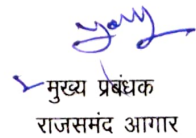 मुख्य प्रबंधक
राजसमंद आगार